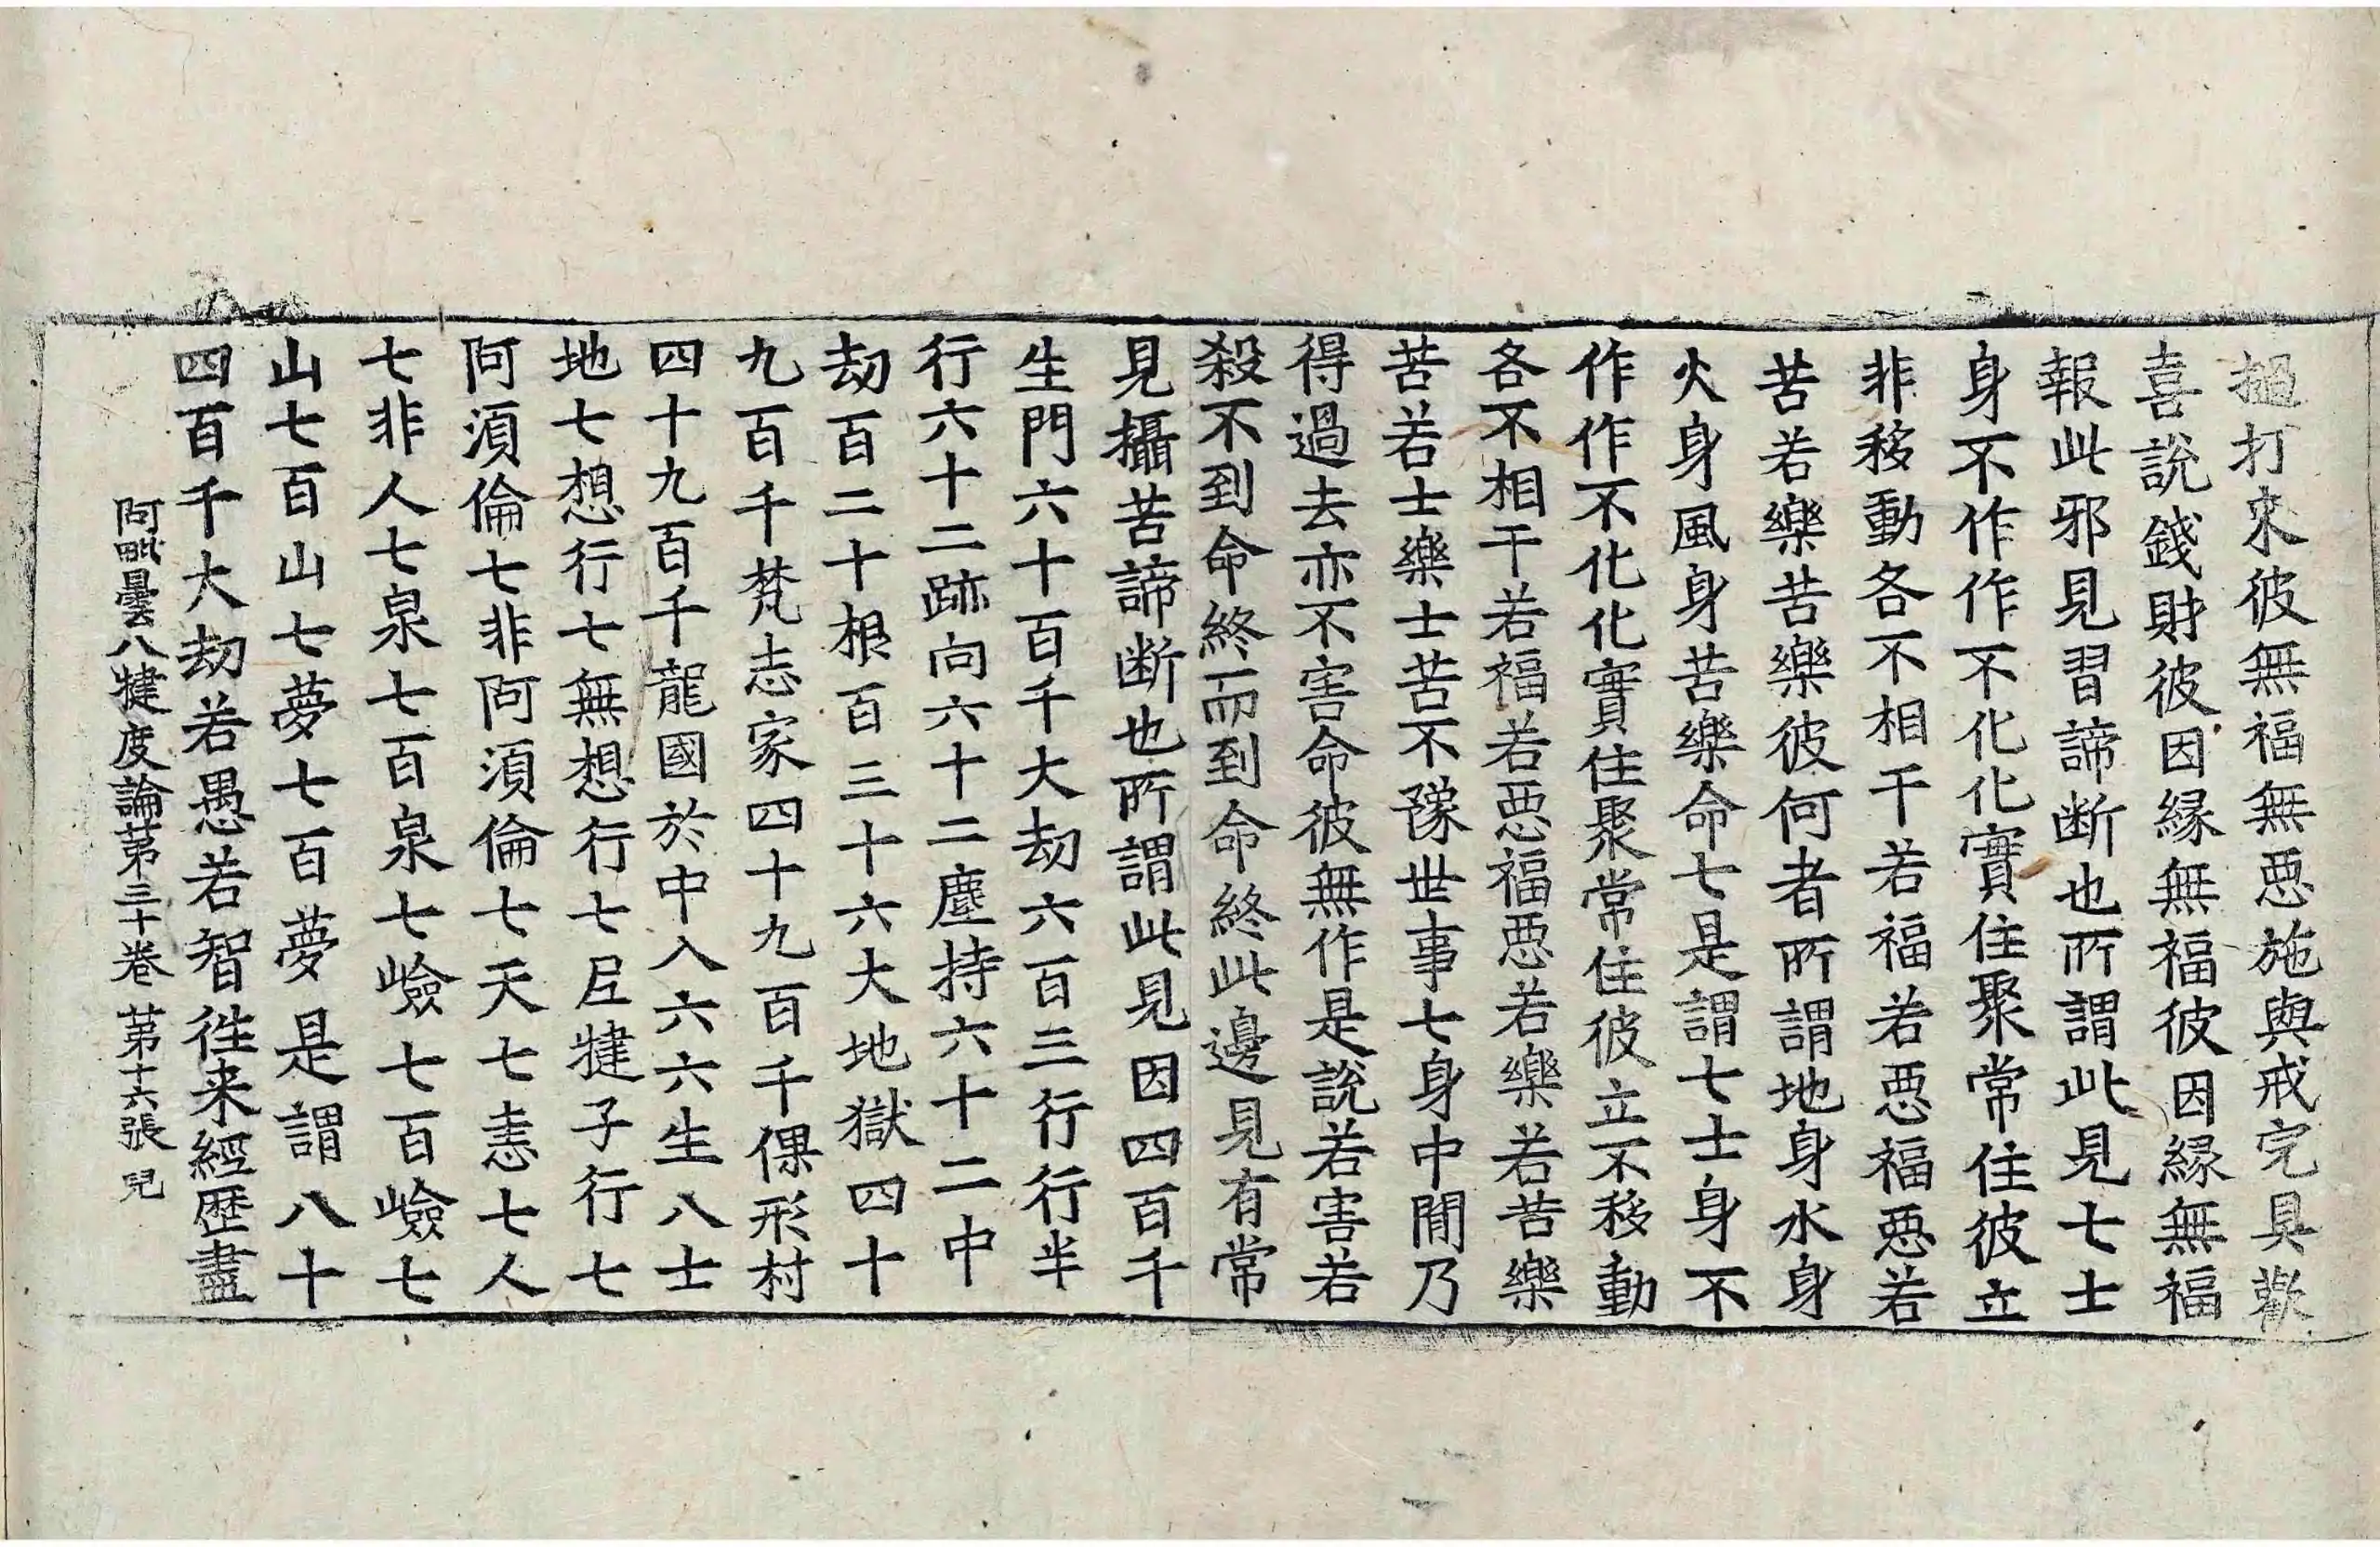 撾打來彼無福無惡施與戒完具歡
喜說錢財彼因緣無福彼因緣無福
報此邪見習諦断也所謂此見七士
身不作作不化化實住聚常住彼立
非移動各不相干若福若惡福惡若
苦若樂苦樂彼何者所謂地身水身
火身風身苦樂命七是謂七士身不
作作不化化實住聚常住彼立不移動
各不相干若福若惡福惡若樂若苦樂
苦若士樂士苦不豫世事七身中間乃
得過去亦不害命彼無作是說若害若
殺不到命終而到命終此邊見有常
見攝苦諦断也所謂此見因四百千
生門六十百千大劫六百三行行半
行六十二跡向六十二塵持六十二中
劫百二十根百三十六大地獄四十
九百千梵志家四十九百千倮形村
四十九百千龍國於中入六六生八士
地七想行七無想行七尼揵子行七
阿須倫七非阿須倫七天七恚七人
七非人七泉七百泉七嶮七百嶮七
山七百山七夢七百夢是謂八十
四百千大劫若愚若智往来經歴盡
阿毗曇八揵度論第三十卷 第十六張 兒